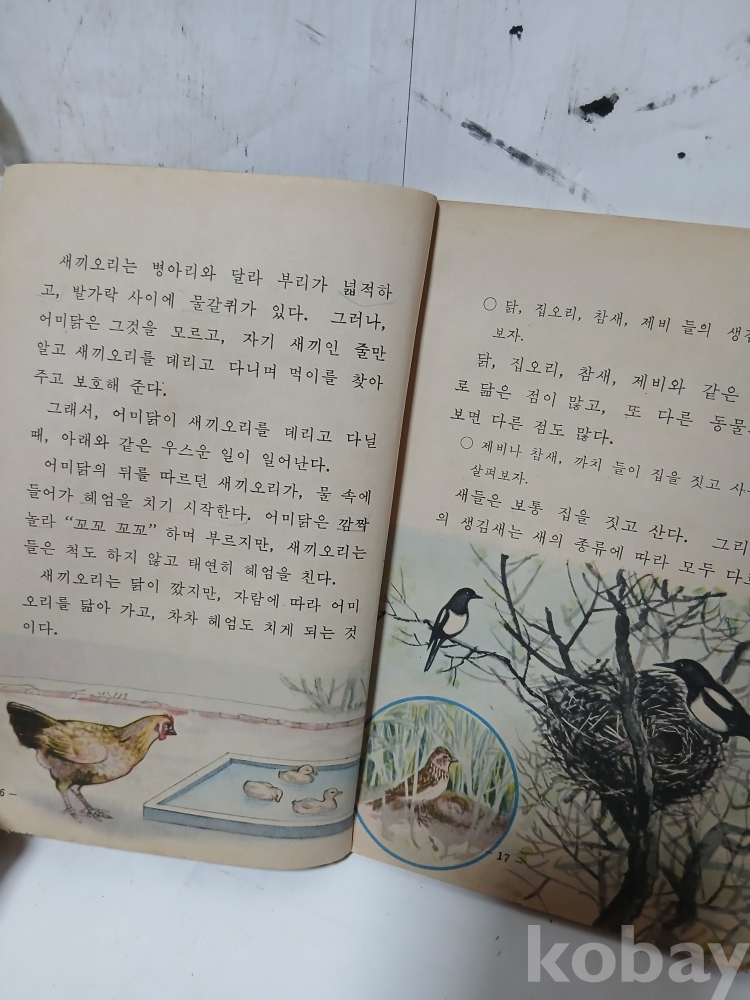 새끼오리는 병아리와 달라 부리가 넓적하
고, 발가락 사이에 물갈퀴가 있다. 그러나,
어미닭은 그것을 모르고, 자기 새끼인 줄만
알고 새끼오리를 데리고 다니며 먹이를 찾아
주고 보호해 준다.
그래서, 어미닭이 새끼오리를 데리고 다닐
때, 아래와 같은 우스운 일이 일어난다.
어미닭의 뒤를 따르던 새끼오리가, 물 속에
들어가 헤엄을 치기 시작한다. 어미닭은 깜짝
놀라 “꼬꼬 꼬꼬” 하며 부르지만, 새끼오리는
들은 척도 하지 않고 태연히 헤엄을 친다.
새끼오리는 닭이 깠지만, 자람에 따라 어미
오리를 닮아 가고, 차차 헤엄도 치게 되는 것
이다.
6 –
○ 닭, 집오리, 참새, 제비 들의 생김
보자.
닭, 집오리, 참새, 제비와 같은
로 닮은 점이 많고, 또 다른 동물
보면 다른 점도 많다.
○ 제비나 참새, 까치 들이 집을 짓고 사
살펴보자.
새들은 보통 집을 짓고 산다. 그리
의 생김새는 새의 종류에 따라 모두 다
– 17 –
kobay